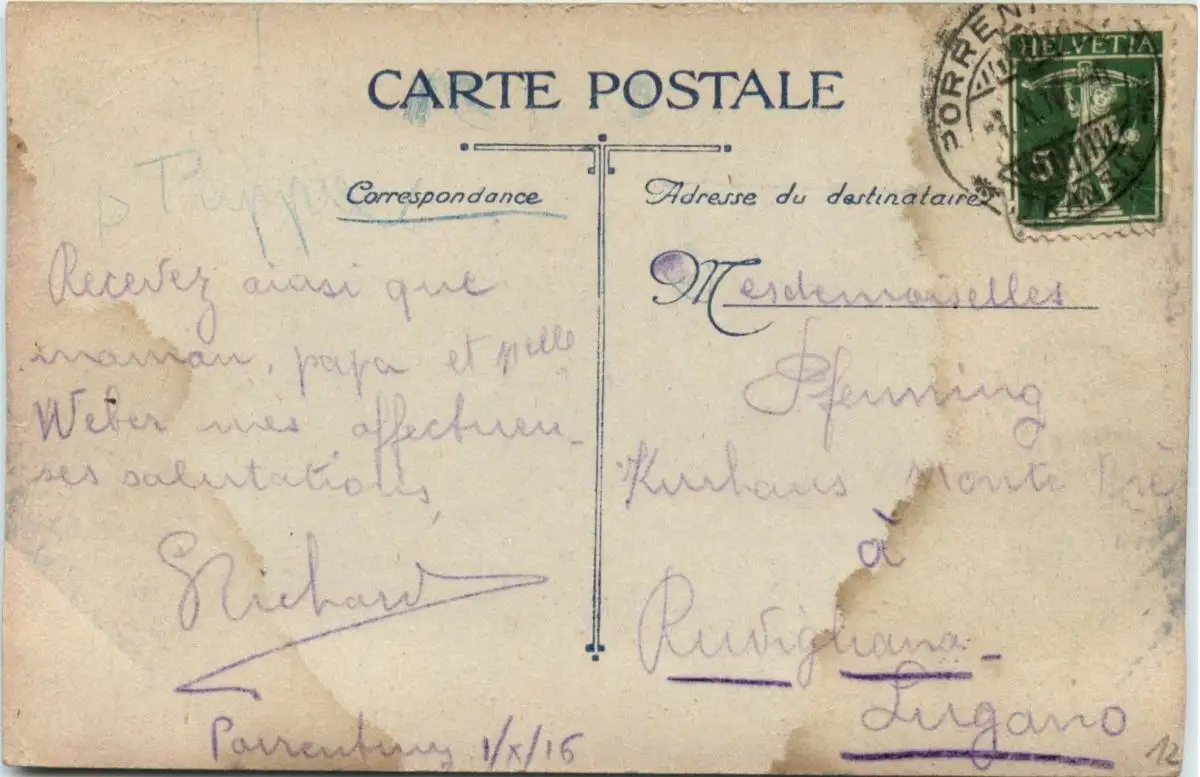 CARTE POSTALE
HELVETIA
Correspondance
Adresse du destinataire
Recevez ainsi que
maman, papa et Mlle
Weber mes affectueu-
ses salutations,
GRichard
Porrentruy 1/X/16
Mesdemoiselles
Pfenning
Kurhaus Monte Brè
à
Ruvigliana-
Lugano
12